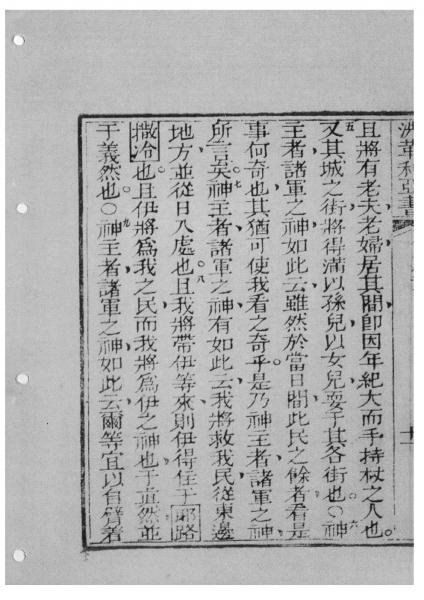 且將有老夫老婦居其間卽因年紀大而手持杖之人也。
五又其城之街將得滿以孫兒以女兒耍于其各街也。○六神
主者諸軍之神如此云雖然於當日間此民之餘者看是
事何奇也其猶可使我看之奇乎。是乃神主者諸軍之神
所言矣。七神主者諸軍之神有如此云我將救我民從東邊
地方並從日入處也。八且我將帶伊等來則伊得住于耶路
撒冷也。且伊將為我之民而我將為伊之神也于眞然並
于義然也。○九神主者諸軍之神如此云爾等宜以自臂着